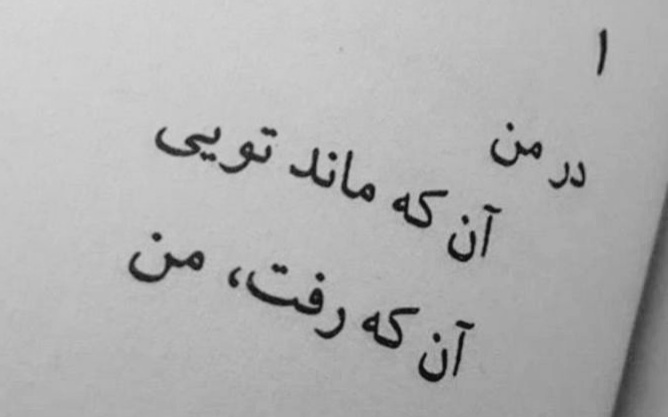 ۱
در من
آن که ماند تویی
آن که رفت، من